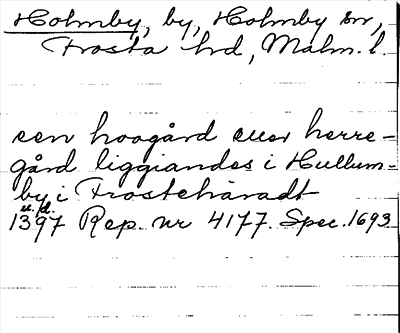 Holmby, by, Holmby sn,
Frosta hd, Malm. l.
een hoogård eller herre-
gård liggiandes i Hullum-
by i Frosteháradt
u. d.
1397 Rep. nr 4177. Spec. 1693